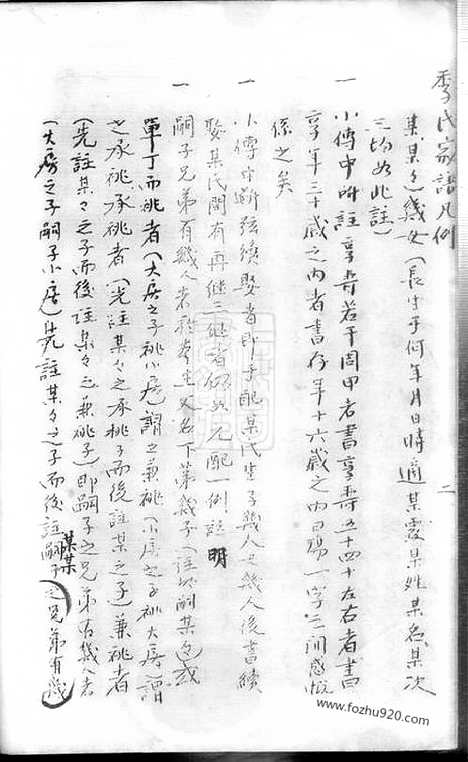 季氏家譜凡例
集某々幾女(長字于何年月日時適某處某姓某名某次
三均如此註)
一
小傳中附註享壽若干周甲者書享壽五十四十左右者書
享年三十歲之內者書存年十六歲之內曰殤一字之間感慨
係之矣
一
小傳中斷弦續娶者即于配某氏生子幾人女幾人後書續
娶某氏間有再继三继者仍如元配一例註明
一
嗣子兄弟有幾人者於本生父名下第幾子(註出嗣某々或
單丁而祧者(大房之子祧小房)謂之兼祧(小房之子祧大房謂
之承祧承祧者(先註某々之承祧子而後註某之子)兼祧者
(先註某々之子而後註某々之兼祧子)即嗣子之兄弟有幾人者
(大房之子嗣子小房)另先註某々之子而後註嗣子某某之兄弟有幾
二
www.fozhu920.com